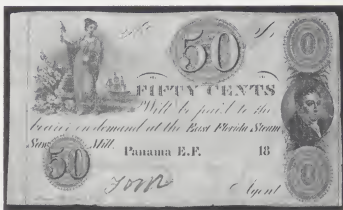 50
FIFTY CENTS
Will be paid to the
bearer on demand at the East Florida Steam
Saw Mill. Panama E.F. 18
50
Agent